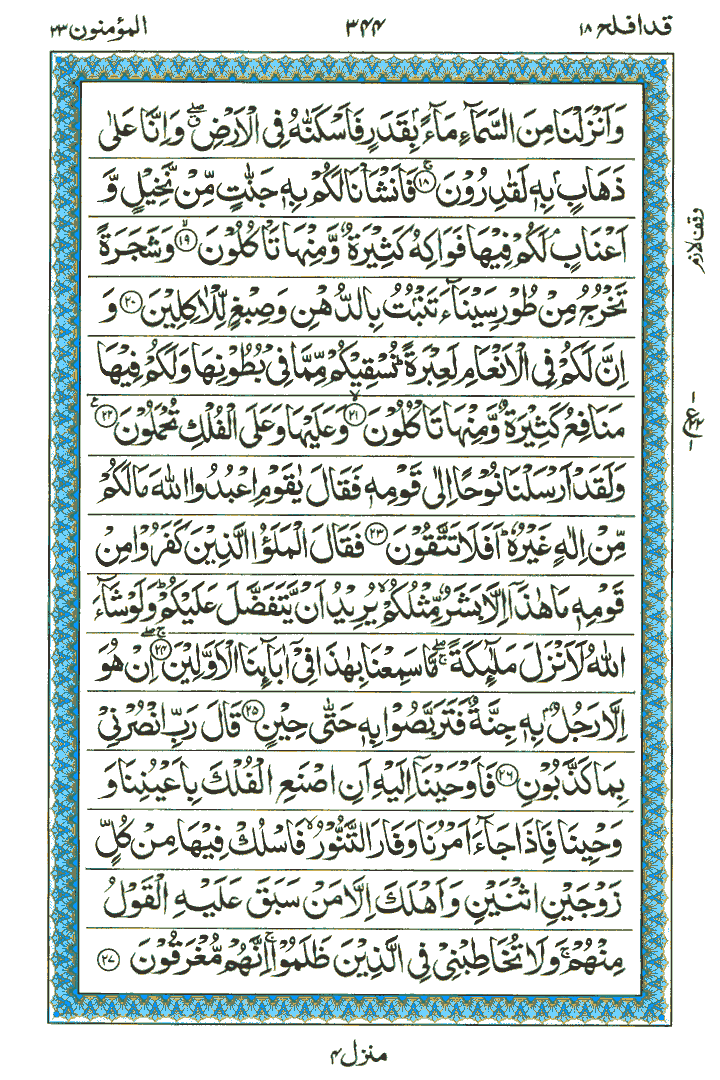 قد افلح ١٨
٣٤٤
المؤمنون ٢٣
وَاَنْزَلْنَا مِنَ السَّمَآءِ مَآءًۢ بِقَدَرٍ فَاَسْكَنّٰهُ فِی الْاَرْضِ ۖۗ وَاِنَّا عَلٰی
ذَهَابٍۭ بِهٖ لَقٰدِرُوْنَ ۚ‏﴿۱۸﴾ فَاَنْشَاْنَا لَكُمْ بِهٖ جَنّٰتٍ مِّنْ نَّخِیْلٍ وَّ
اَعْنَابٍ ۘ لَكُمْ فِیْهَا فَوَاكِهُ كَثِیْرَةٌ وَّمِنْهَا تَاْكُلُوْنَ ۙ‏﴿۱۹﴾ وَشَجَرَةً
تَخْرُجُ مِنْ طُوْرِ سَیْنَآءَ تَنْۢبُتُ بِالدُّهْنِ وَصِبْغٍ لِّلْاٰكِلِیْنَ ﴿۲۰﴾ وَ
اِنَّ لَكُمْ فِی الْاَنْعَامِ لَعِبْرَةً ؕ نُسْقِیْكُمْ مِّمَّا فِیْ بُطُوْنِهَا وَلَكُمْ فِیْهَا
مَنَافِعُ كَثِیْرَةٌ وَّمِنْهَا تَاْكُلُوْنَ ۙ‏﴿۲۱﴾ وَعَلَیْهَا وَعَلَی الْفُلْكِ تُحْمَلُوْنَ ﴿۲۲﴾ ع
وَلَقَدْ اَرْسَلْنَا نُوْحًا اِلٰی قَوْمِهٖ فَقَالَ یٰقَوْمِ اعْبُدُوا اللّٰهَ مَا لَكُمْ
مِّنْ اِلٰهٍ غَیْرُهٗ ؕ اَفَلَا تَتَّقُوْنَ ﴿۲۳﴾ فَقَالَ الْمَلَؤُا الَّذِیْنَ كَفَرُوْا مِنْ
قَوْمِهٖ مَا هٰذَاۤ اِلَّا بَشَرٌ مِّثْلُكُمْ ۙ یُرِیْدُ اَنْ یَّتَفَضَّلَ عَلَیْكُمْ ؕ وَلَوْ شَآءَ
اللّٰهُ لَاَنْزَلَ مَلٰٓىِٕكَةً ۖۚ مَّا سَمِعْنَا بِهٰذَا فِیْۤ اٰبَآىِٕنَا الْاَوَّلِیْنَ ۖۚ‏﴿۲۴﴾ اِنْ هُوَ
اِلَّا رَجُلٌۢ بِهٖ جِنَّةٌ فَتَرَبَّصُوْا بِهٖ حَتّٰی حِیْنٍ ﴿۲۵﴾ قَالَ رَبِّ انْصُرْنِیْ
بِمَا كَذَّبُوْنِ ﴿۲۶﴾ فَاَوْحَیْنَاۤ اِلَیْهِ اَنِ اصْنَعِ الْفُلْكَ بِاَعْیُنِنَا وَ
وَحْیِنَا فَاِذَا جَآءَ اَمْرُنَا وَفَارَ التَّنُّوْرُ ۙ فَاسْلُكْ فِیْهَا مِنْ كُلٍّ
زَوْجَیْنِ اثْنَیْنِ وَاَهْلَكَ اِلَّا مَنْ سَبَقَ عَلَیْهِ الْقَوْلُ
مِنْهُمْ ۚ وَلَا تُخَاطِبْنِیْ فِی الَّذِیْنَ ظَلَمُوْا ۚ اِنَّهُمْ مُّغْرَقُوْنَ ﴿۲۷﴾
وقف لازم
منزل ۴